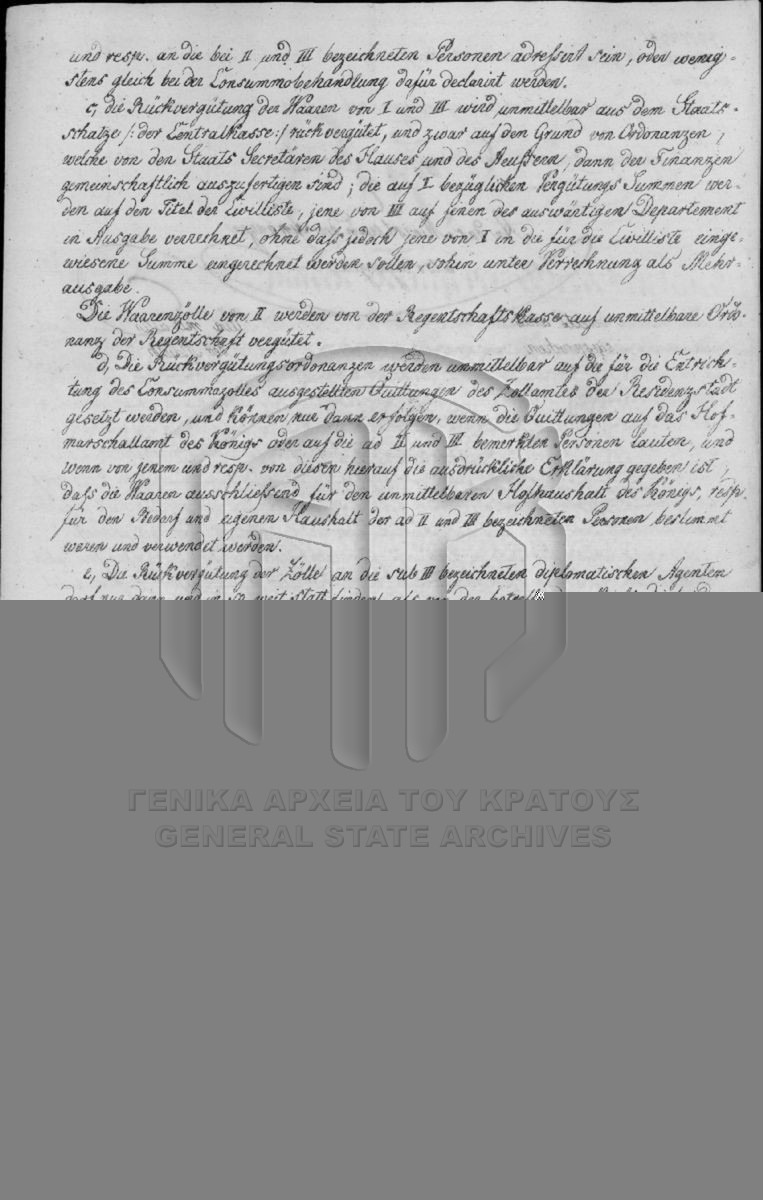 und resp. an die bei II und III bezeichneten Personen adressirt sein, oder wenig-
stens gleich bei der Consummobehandlung dafür declarirt werden.
c, die Rückvergütung der Waaren von I und III wird unmittelbar aus dem Staats-
schatze /: der Centralkasse :/ rückvergütet, und zwar auf den Grund von Ordonanzen,
welche von den Staats Secretären des Hauses und des Aeussern, dann der Finanzen
gemeinschaftlich auszufertigen sind; die auf I bezüglichen Vergütungs Summen wer-
den auf den Titel der Civilliste, jene von III auf jenen des auswärtigen Departement
in Ausgabe verrechnet, ohne dass jedoch jene von I in die für die Civilliste einge-
wiesene Summe eingerechnet werden sollen, sohin unter Verrechnung als Mehr-
ausgabe.
Die Waarenzölle von II werden von der Regentschaftskasse auf unmittelbare Ordo-
nanz der Regentschaft vergütet.
d, Die Rückvergütungsordonanzen werden unmittelbar auf die für die Entrich-
tung des Consummozolles ausgestellten Quittungen des Zollamtes der Residenzstadt
gesetzt werden, und können nur dann erfolgen, wenn die Quittungen auf das Hof-
marschallamt des Königs oder auf die ad II und III bemerkten Personen lauten, und
wenn von jenem und resp. von diesen hierauf die ausdrückliche Erklärung gegeben ist,
dass die Waaren ausschliessend für den unmittelbaren Hofhaushalt des Königs, resp.
für den Bedarf und eigenen Haushalt der ad II und III bezeichneten Personen bestimmt
waren und verwendet werden.
e, Die Rückvergütung der Zölle an die sub III bezeichneten diplomatischen Agenten
darf nur dann und in so weit statt finden, als von den
ΓΕΝΙΚΑ ΑΡΧΕΙΑ ΤΟΥ ΚΡΑΤΟΥΣ
GENERAL STATE ARCHIVES